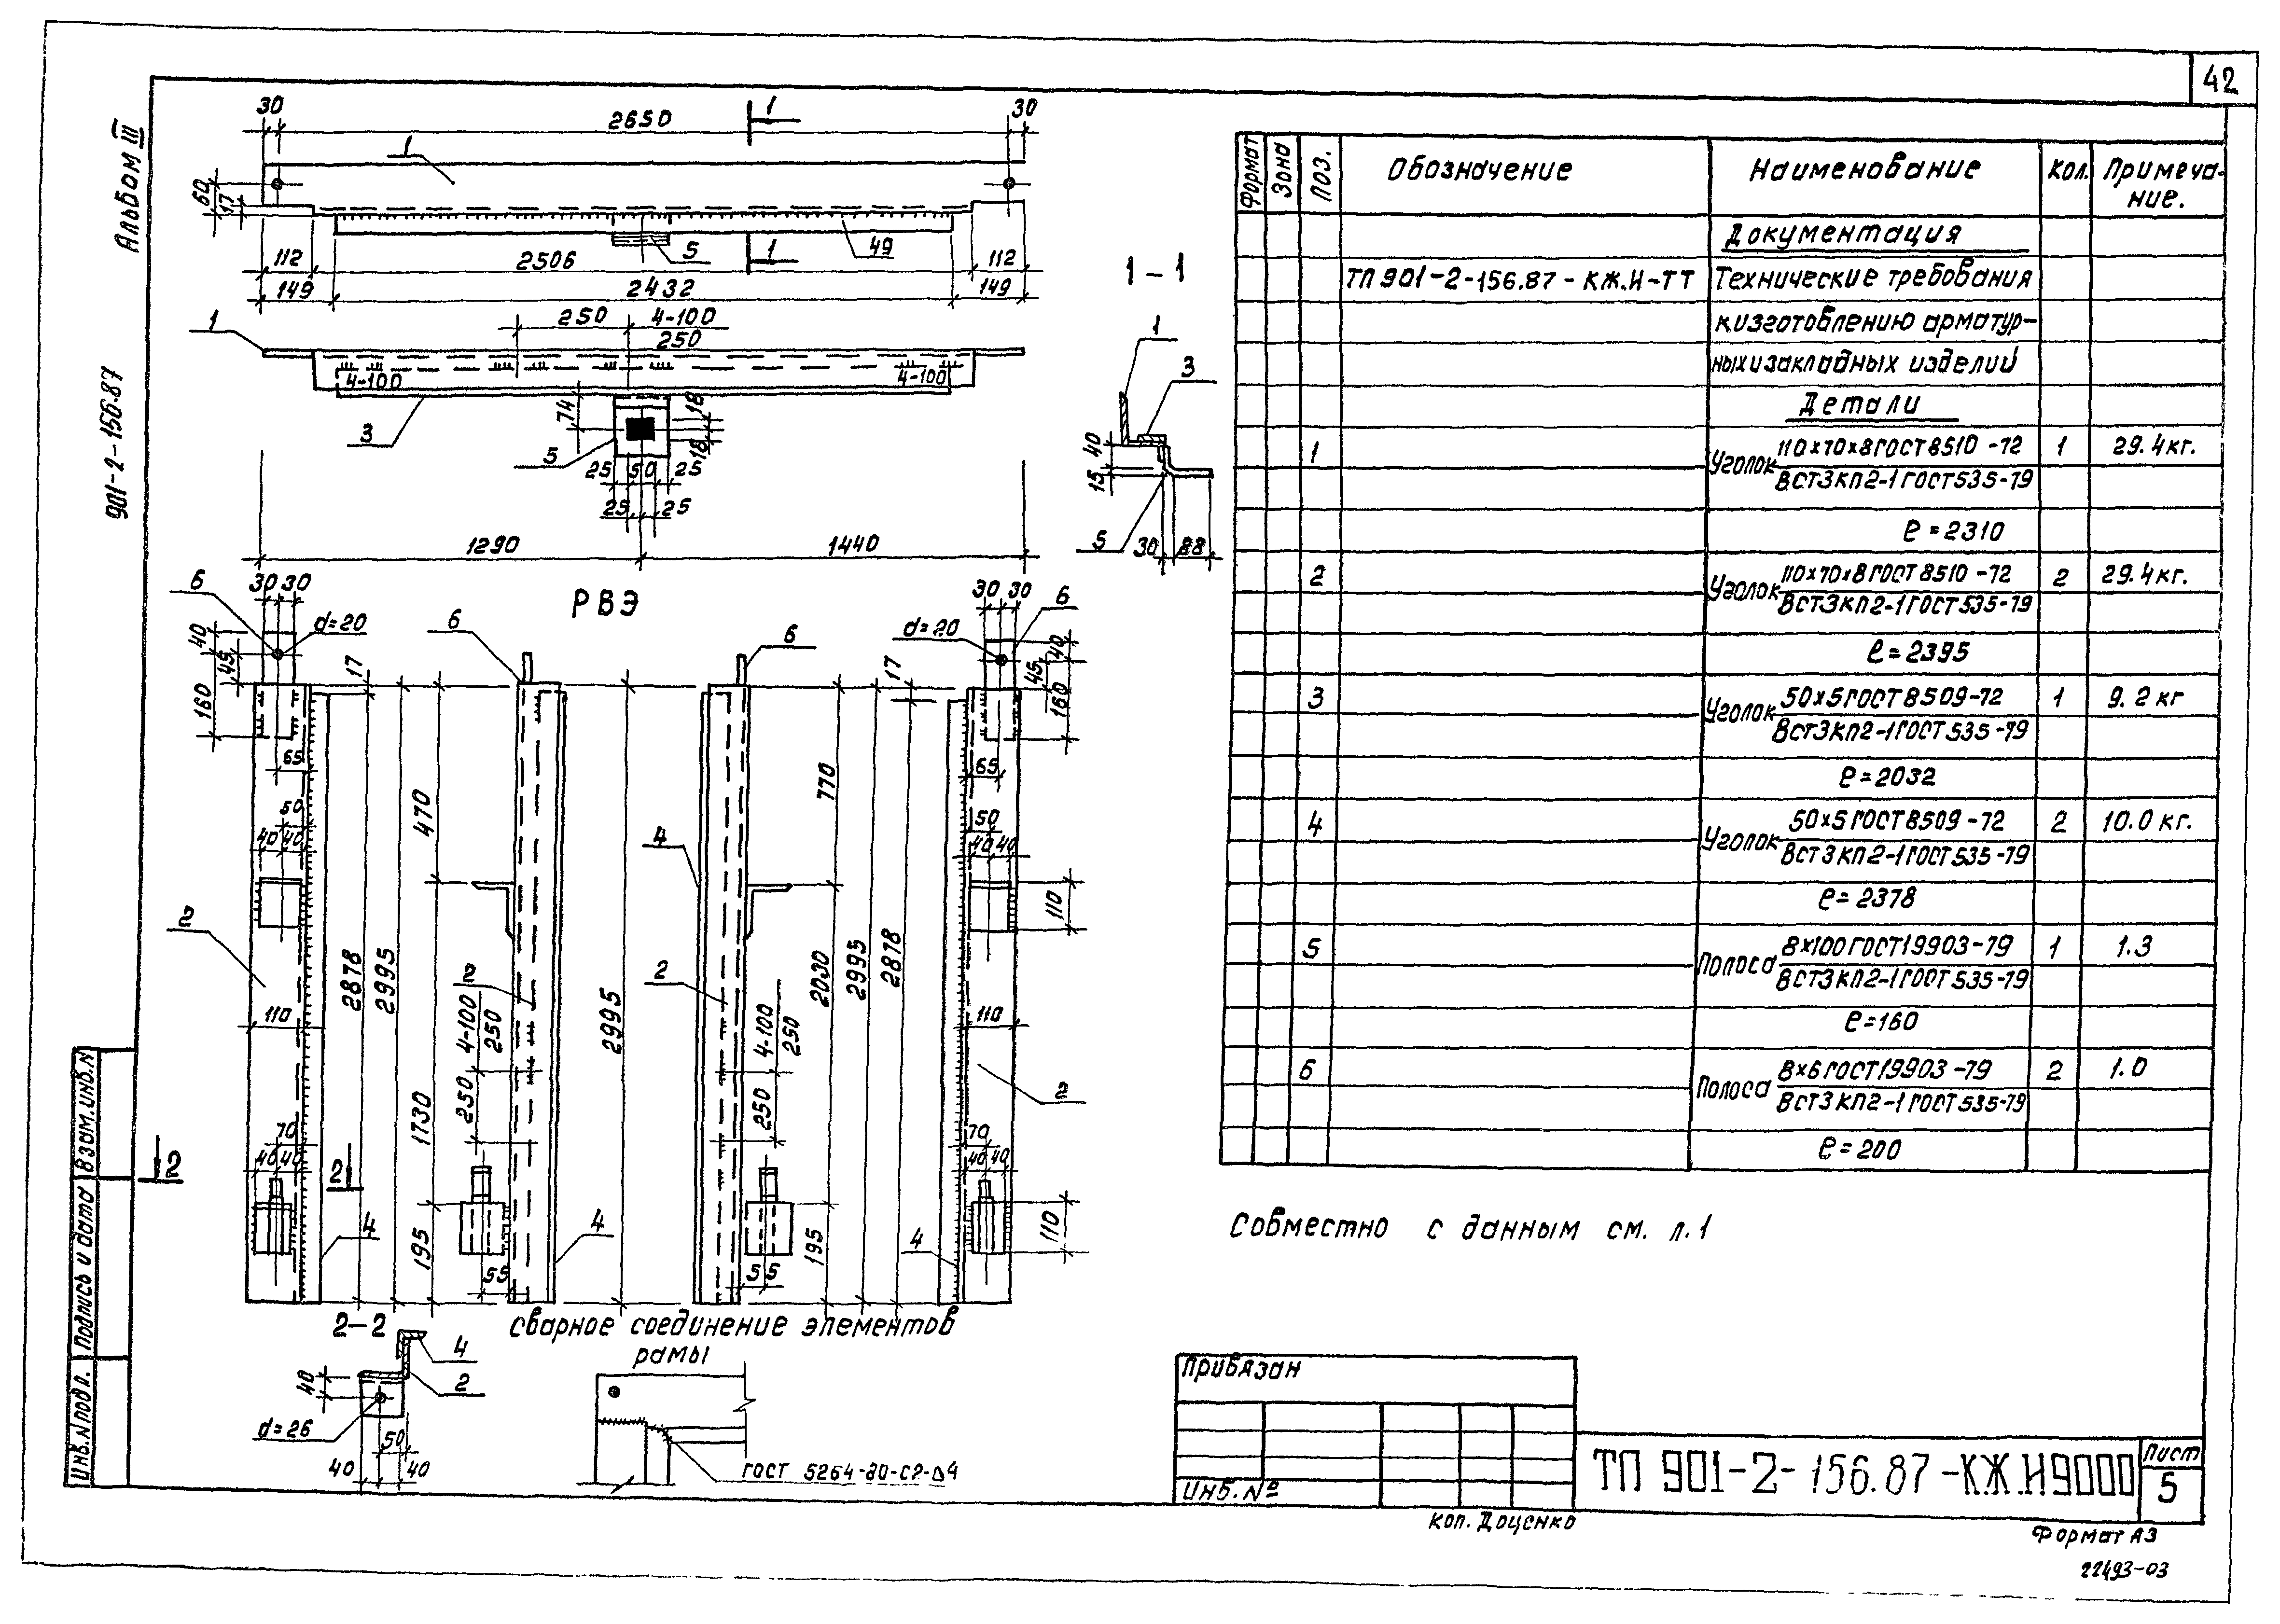 42
Альбом III
901-2-156.87
30
2650
1
30
1
60
17
5
1
49
112
2506
112
149
2432
149
250
4-100
250
1
4-100
4-100
3
74
18
18
5
25
50
25
25
25
1290
1440
1-1
1
3
40
15
5
30
88
РВЭ
6
30
30
40
d=20
45
160
17
65
50
40
40
2
110
2878
2995
70
40
40
2
2
4
6
470
2
4-100
250
250
1730
195
55
4
2995
6
4
2
4-100
250
250
55
770
2030
195
2995
2878
17
d=20
30
30
6
40
45
160
65
50
40
40
110
110
2
70
40
40
110
4
2-2
4
2
40
d=26
50
40
40
Сварное соединение элементов
рамы
ГОСТ 5264-80-С2-Δ4
Формат
Зона
Поз.
Обозначение
Наименование
Кол.
Примеча-
ние.
Документация
ТП 901-2-156.87-КЖ.И-ТТ
Технические требования
к изготовлению арматур-
ных и закладных изделий
Детали
1
Уголок
110х70х8 ГОСТ 8510-72
1
29.4 кг.
ВСТ3КП2-1 ГОСТ 535-79
ℓ=2310
2
Уголок
110х70х8 ГОСТ 8510-72
2
29.4 кг.
ВСТ3КП2-1 ГОСТ 535-79
ℓ=2395
3
Уголок
50х5 ГОСТ 8509-72
1
9.2 кг
ВСТ3КП2-1 ГОСТ 535-79
ℓ=2032
4
Уголок
50х5 ГОСТ 8509-72
2
10.0 кг.
ВСТ3КП2-1 ГОСТ 535-79
ℓ=2378
5
Полоса
8х100 ГОСТ 19903-79
1
1.3
ВСТ3КП2-1 ГОСТ 535-79
ℓ=160
6
Полоса
8х6 ГОСТ 19903-79
2
1.0
ВСТ3КП2-1 ГОСТ 535-79
ℓ=200
Совместно с данным см. л.1
Инв. N подл.
Подпись и дата
Взам. инв. N
Привязан
Инв. №
ТП 901-2-156.87-КЖ.И9000
Лист
5
Коп. Доценко
Формат А3
22493-03